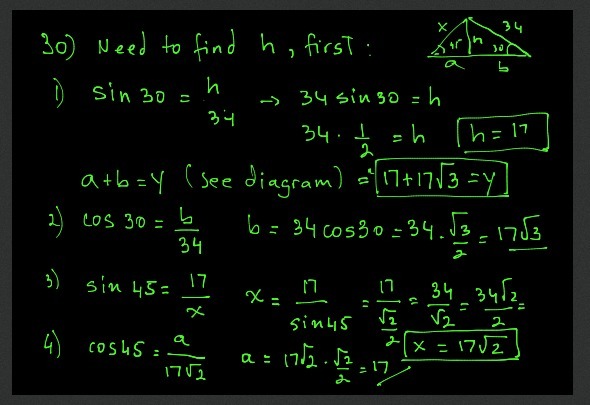 30) Need to find h, first:
x 34
45 h 30
a b
1) sin 30 = h/34 → 34 sin 30 = h
34 · 1/2 = h h = 17
a+b=y (see diagram) = 17+17√3 = y
2) cos 30 = b/34 b = 34 cos 30 = 34 · √3/2 = 17√3
3) sin 45 = 17/x x = 17/sin 45 = 17/(√2/2) = 34/√2 = 34√2/2 =
4) cos 45 = a/17√2 a = 17√2 · √2/2 = 17 x = 17√2